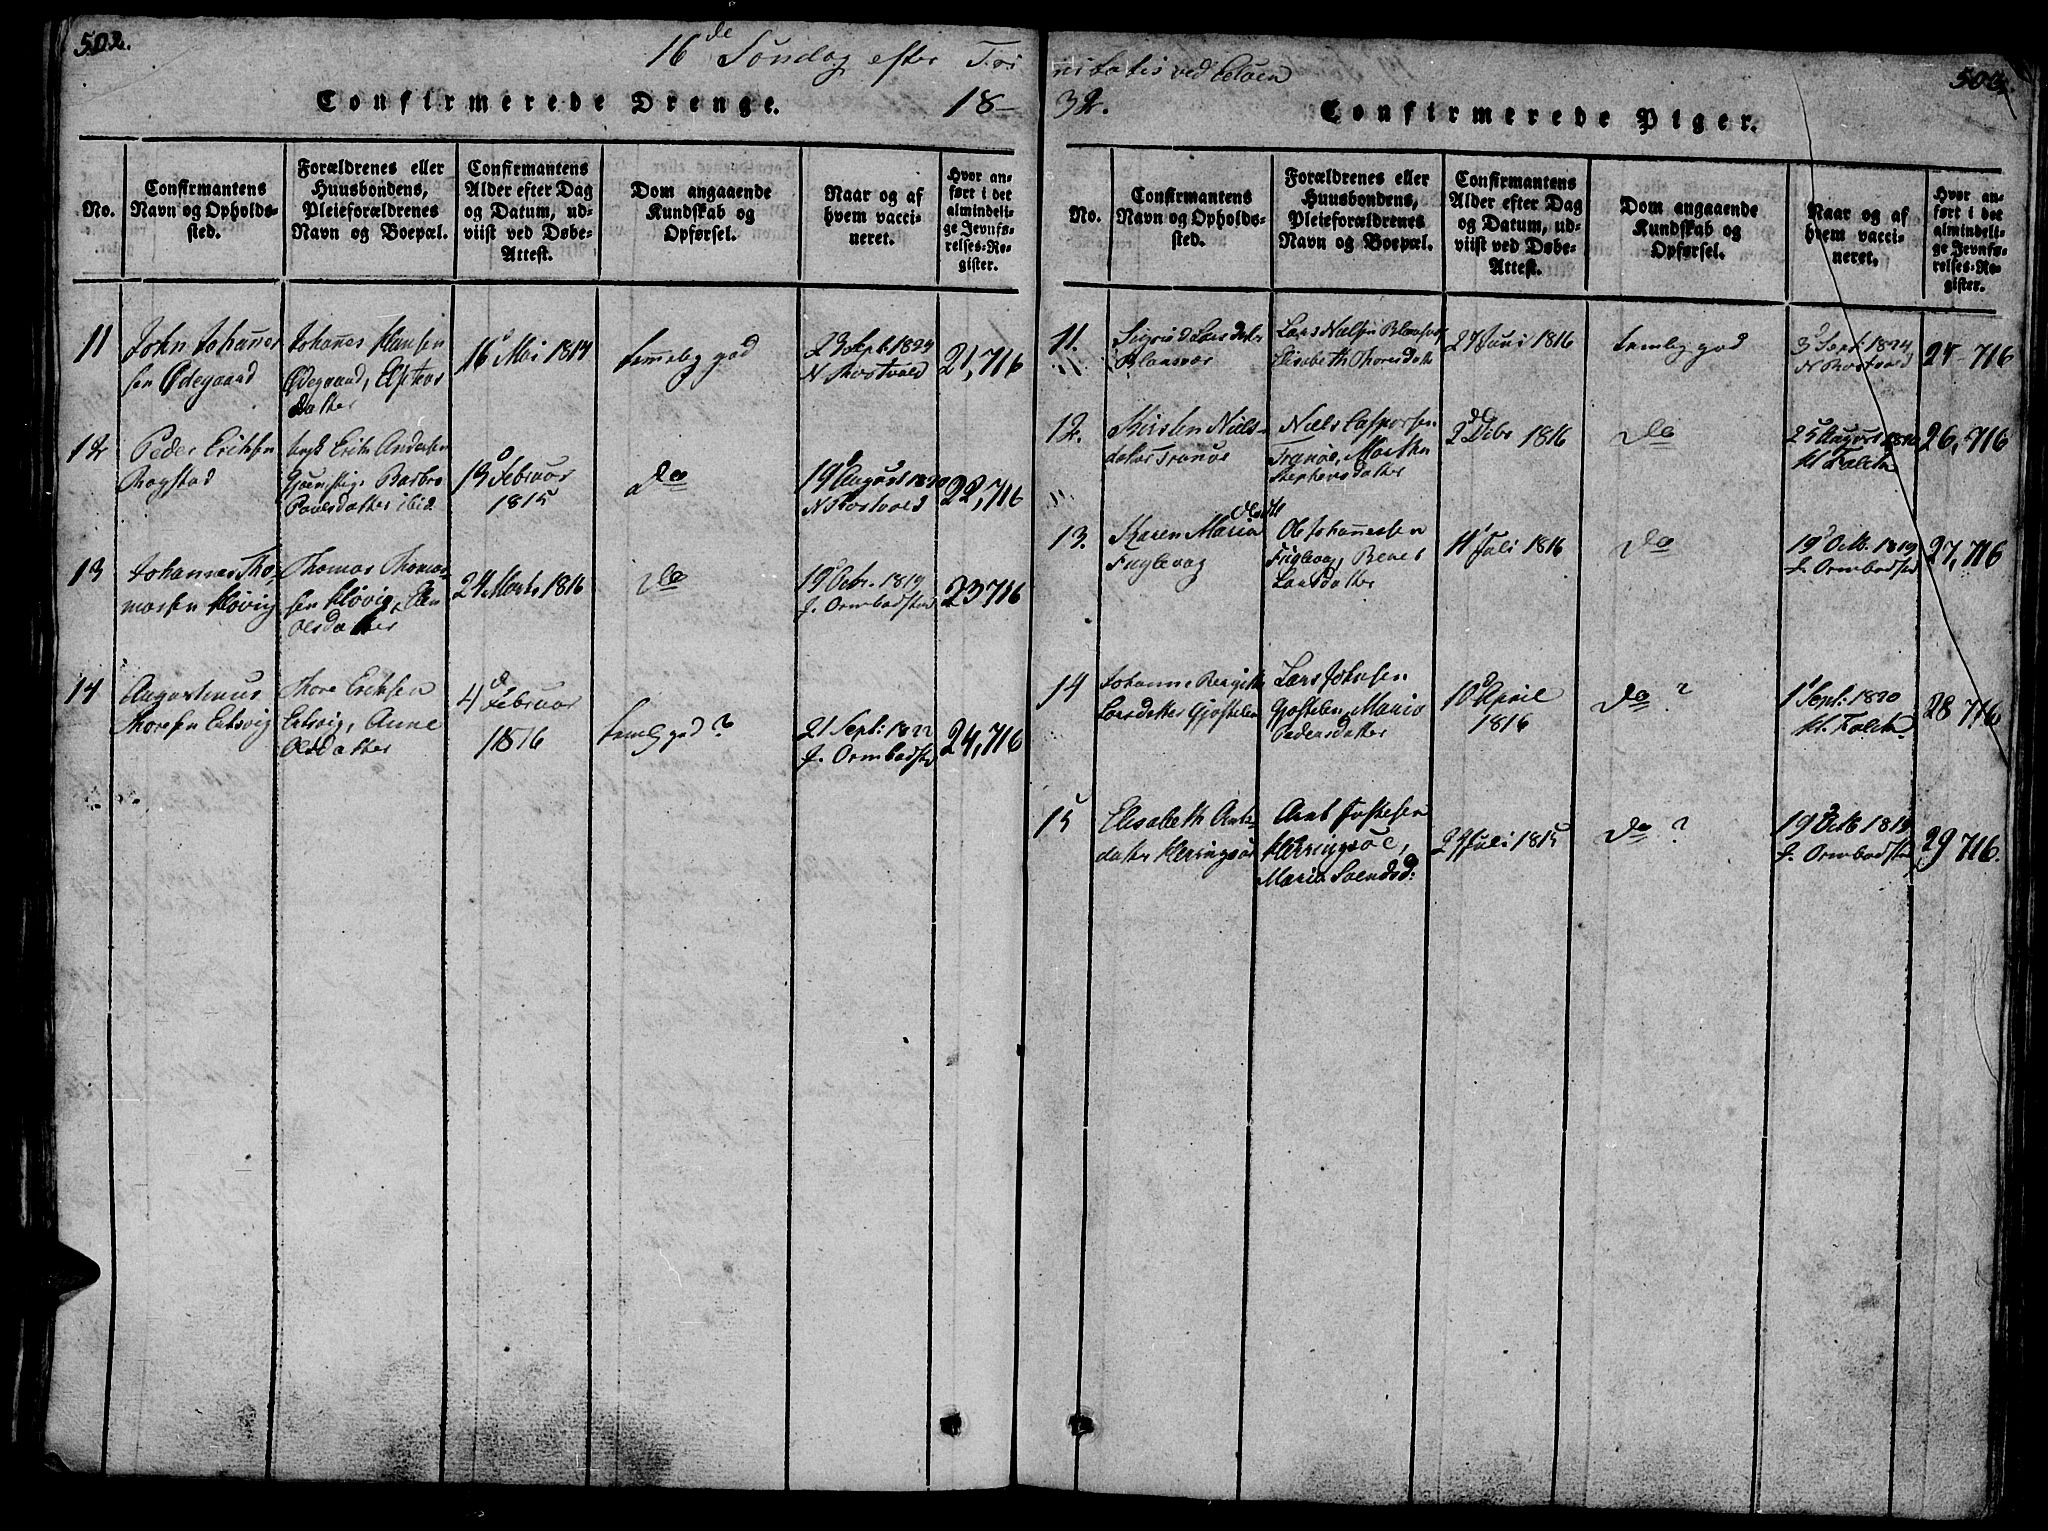 502.
16de Søndag efter Tri
Confirmerede Drenge.
18-
No.
Confirmantens
Navn og Opholds-
sted.
Forældrenes eller
Huusbondens,
Pleieforældrenes
Navn og Boepæl.
Confirmantens
Alder efter Dag
og Datum, ud-
viist ved Døbe-
Attest.
Dom angaaende
Kundskab og
Opførsel.
Naar og af
hvem vacci-
neret.
Hvor an-
ført i det
almindeli-
ge Jevnfø-
relses-Re-
gister.
11
John Johannes
sen Ødegaard
Johannes Hansen
Ødegaard,
datter
16 Mai 1814
temelig god
23 Sept. 1824
N Rostvold
21,716
12
Peder Erichsen
Rogstad
Erik Andersen
Barbro
Paulsdatter ibid
13 Februar
1815
do
19 August 1820
N Rostvold
22,716
13
Johannes Tho-
massen Høvig
Thomas Thomas-
sen Høvig,
Olsdatter
24 Marts 1816
do
19 Octr. 1819
J. Ormbodsted
23 716
14
Augustinus
Thoresen Ertsvig
Thore Erichsen
Ertsvig, Anne
Olsdatter
4d Februar
1816
temlig god?
21 Sept: 1822
J. Ormbodsted
24,716
nitatis ved
502.
32.
Confirmerede Piger.
No.
Confirmantens
Navn og Opholds-
sted.
Forældrenes eller
Huusbondens,
Pleieforældrenes
Navn og Boepæl.
Confirmantens
Alder efter Dag
og Datum, ud-
viist ved Døbe-
Attest.
Dom angaaende
Kundskab og
Opførsel.
Naar og af
hvem vacci-
neret.
Hvor an-
ført i det
almindeli-
ge Jevnfø-
relses-Re-
gister.
11.
Sigrid Larsdatr
Blansvær
Lars Nielsen
Elisabeth Thoresdatt
27 Juni 1816
temlig god
3d Sept: 1824
N Rostvold
25-716
12.
Kirsten Niels-
datter Tranøe
Niels Caspersen
Tranøe, Marthe
Stephensdatter
2d Debr 1816
do
25 August
Kl Falch
26,716
13.
Karen Maria Olsdtr
Fuglevog
Ole Johannessen
Fuglevog,
Larsdatter
11 Juli 1816
do
19 Octb. 1819
J. Ormbodsted
27,716
14
Johanne Bergithe
Larsdatter Gjøstelen
Lars Johnsen
Gjøstelen, Maria
Pedersdatter
10d April
1816
do?
1 Sept: 1820
Kl. Falch
28 716
15
Elisabeth Ants-
datter Herringsøe
Arnt Jostesen
Herringsøe,
Maria Svendsd:
27 Juli 1815
do?
19 Octb 1819
J. Ormbodsted
29 716.